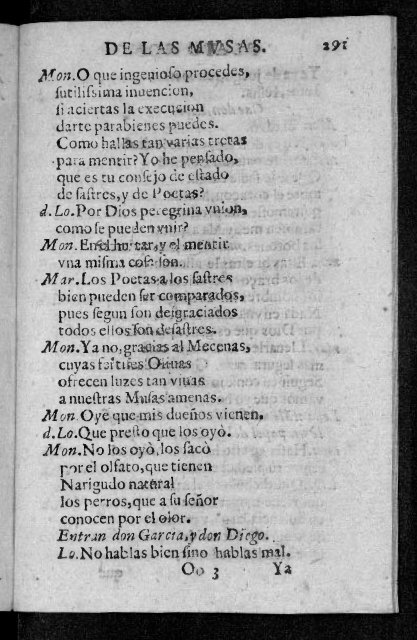 DE LAS MVSAS. 291
Mon. O que ingenioso procedes,
sutilissima inuencion,
si aciertas la execucion
darte parabienes puedes.
Como hallas tan varias tretas
para mentir? Yo he pensado,
que es tu consejo de estado
de sastres, y de Poetas?
d. Lo. Por Dios peregrina vnion,
como se pueden vnir?
Mon. En el hurtar, y el mentir
vna misma cosa son.
Mar. Los Poetas a los sastres
bien pueden ser comparados,
pues segun son desgraciados
todos ellos son desastres.
Mon. Ya no, gracias al Mecenas,
cuyas fertiles Oliuas
ofrecen luzes tan viuas
a nuestras Musas amenas.
Mon. Oye que mis dueños vienen.
d. Lo. Que presto que los oyò.
Mon. No los oyò, los sacò
por el olfato, que tienen
Narigudo natural
los perros, que a su señor
conocen por el olor.
Entran don Garcia, y don Diego.
Lo. No hablas bien sino hablas mal.
Oo 3 Ya